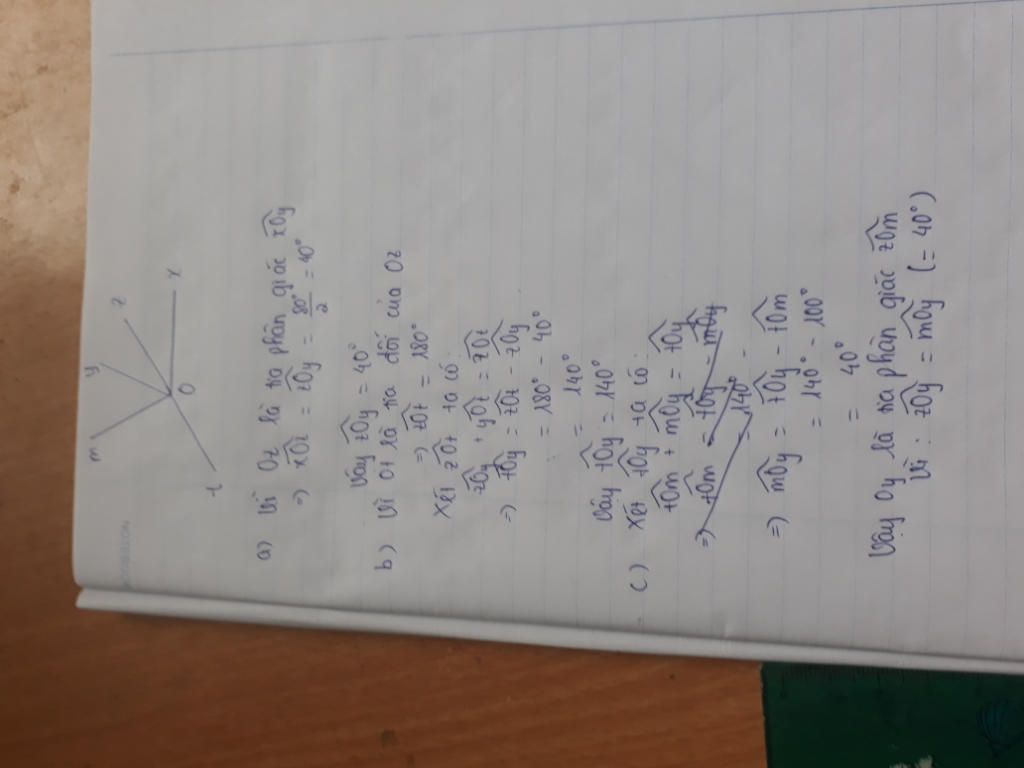 m
y
z
x
O
t
a) Vì Oz là tia phân giác x̂Oy
=> x̂Oz = ẑOy = 80°/2 = 40°
Vậy ẑOy = 40°
b) Vì Ot là tia đối của Oz
=> ẑOt = 180°
Xét ẑOt ta có
ẑOy + ŷOt = ẑOt
=> t̂Oy = ẑOt - ẑOy
= 180° - 40°
= 140°
Vậy t̂Oy = 140°
c) Xét t̂Oy ta có
t̂Om + m̂Oy = t̂Oy
=> t̂Om = t̂Oy - m̂Oy
= 140° -
=> m̂Oy = t̂Oy - t̂Om
= 140° - 100°
= 40°
Vậy Oy là tia phân giác ẑOm
Vì : ẑOy = m̂Oy (= 40°)